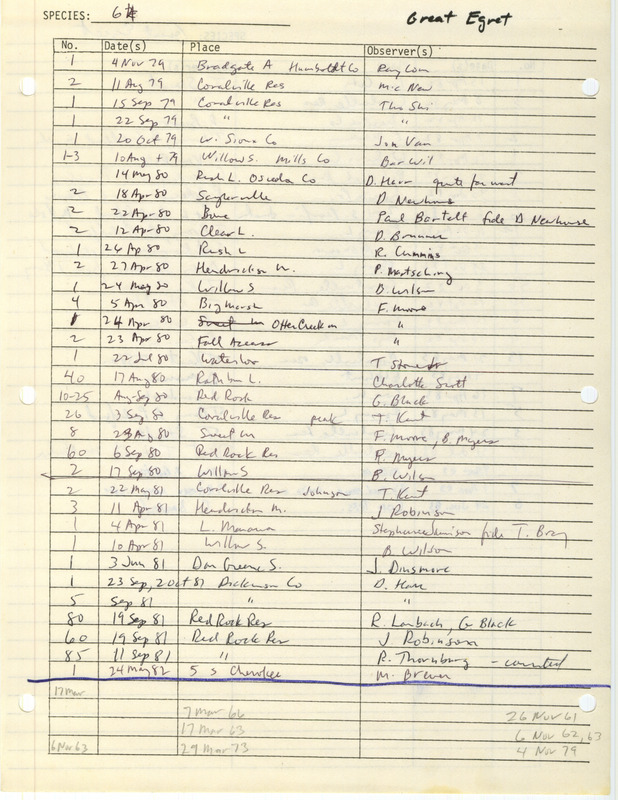 SPECIES: 6 Great Egret
No. Date(s) Place Observer(s)
1 4 Nov 79 Bradgate A Humboldt Co Ray Cum
2 11 Aug 79 Coralville Res Mic New
1 15 Sep 79 Coralville Res Tho Shi
1 22 Sep 79 " "
1 20 Oct 79 w. Sioux Co Jon Van
1-3 10 Aug + 79 Willow S. Mills Co Bar Wil
14 May 80 Rush L. Osceola Co D. Harr
2 18 Apr 80 Saylorville D Newhouse
2 22 Apr 80 Paul Bartelt fide D Newhouse
2 12 Apr 80 Clear L. D. Brunner
1 26 Ap 80 Rush L R. Cummins
2 27 Apr 80 Hendrickson M. P. Martsching
1 24 May 80 Willow S B. Wilson
4 5 Apr 80 Big Marsh F. Moore
1 24 Apr 80 Sweet M Otter Creek M "
2 23 Apr 80 Fall Access "
1 22 Jul 80 Waterloo T
40 17 Aug 80 Rathbun L. Charlotte Scott
10-25 Aug-Sep 80 Red Rock G. Black
26 3 Sep 80 Coralville Res peak T. Kent
8 28 Aug 80 Sweet M F. Moore, B. Myers
60 6 Sep 80 Red Rock Res R. Myers
2 17 Sep 80 Willow S B. Wilson
2 22 May 81 Coralville Res Johnson T. Kent
3 11 Apr 81 Hendrickson M. J Robinson
1 4 Apr 81 L. Manawa Stephanie Jamison fide T. Bray
1 10 Apr 81 Willow S. B. Wilson
1 3 Jun 81 Dan Greene S. J. Dinsmore
1 23 Sep, 2 Oct 81 Dickinson Co D. Harr
5 Sep 81 " "
80 19 Sep 81 Red Rock Res R. Lambach, G Black
60 19 Sep 81 Red Rock Res J Robinson
85 11 Sep 81 " R. Thornburg - counted
1 24 May 82 5 s Cherokee M. Brewer
17 Mar
7 Mar 66 26 Nov 61
17 Mar 63 6 Nov 62, 63
6 Nov 63 29 Mar 73 4 Nov 79